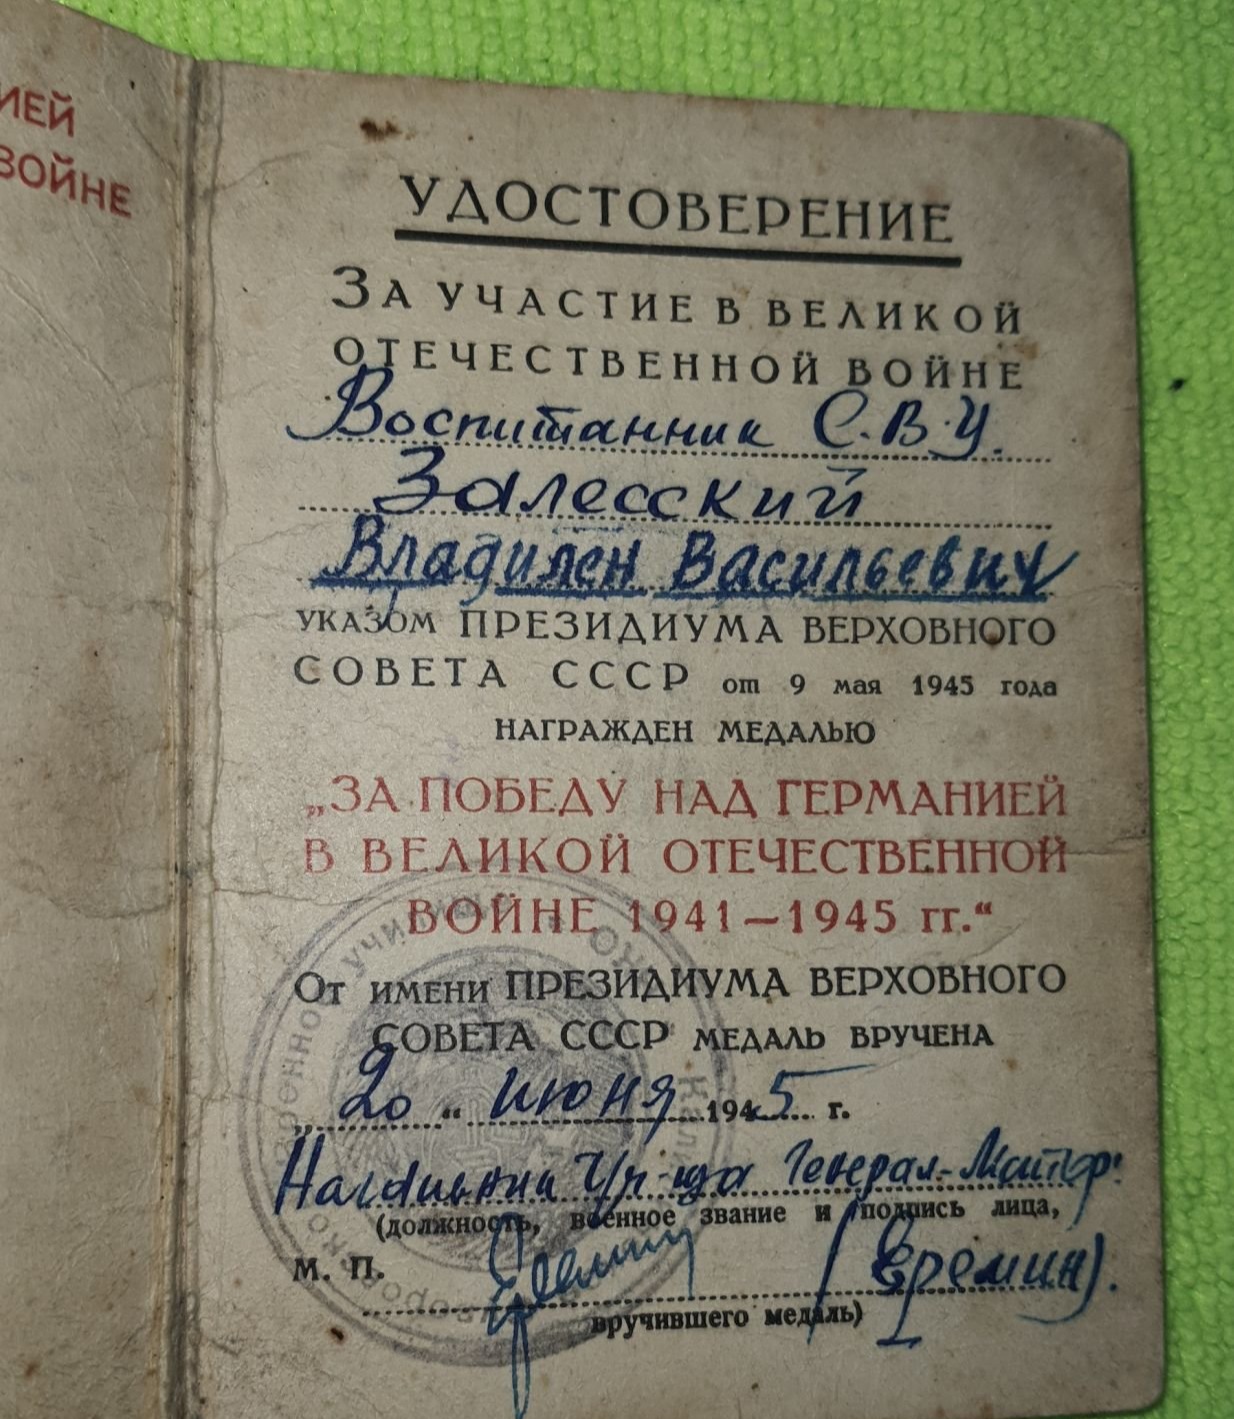 ИЕЙ
ВОЙНЕ
УДОСТОВЕРЕНИЕ
ЗА УЧАСТИЕ В ВЕЛИКОЙ
ОТЕЧЕСТВЕННОЙ ВОЙНЕ
Воспитанник С.В.У.
Залесский
Владилен Васильевич
УКАЗОМ ПРЕЗИДИУМА ВЕРХОВНОГО
СОВЕТА СССР от 9 мая 1945 года
НАГРАЖДЕН МЕДАЛЬЮ
„ЗА ПОБЕДУ НАД ГЕРМАНИЕЙ
В ВЕЛИКОЙ ОТЕЧЕСТВЕННОЙ
ВОЙНЕ 1941—1945 гг.“
ОТ ИМЕНИ ПРЕЗИДИУМА ВЕРХОВНОГО
СОВЕТА СССР МЕДАЛЬ ВРУЧЕНА
„20“ июня 1945 г.
Начальник Уч-ща Генерал-Майор
(должность, военное звание и подпись лица,
М. П. (Еремин).
вручившего медаль)